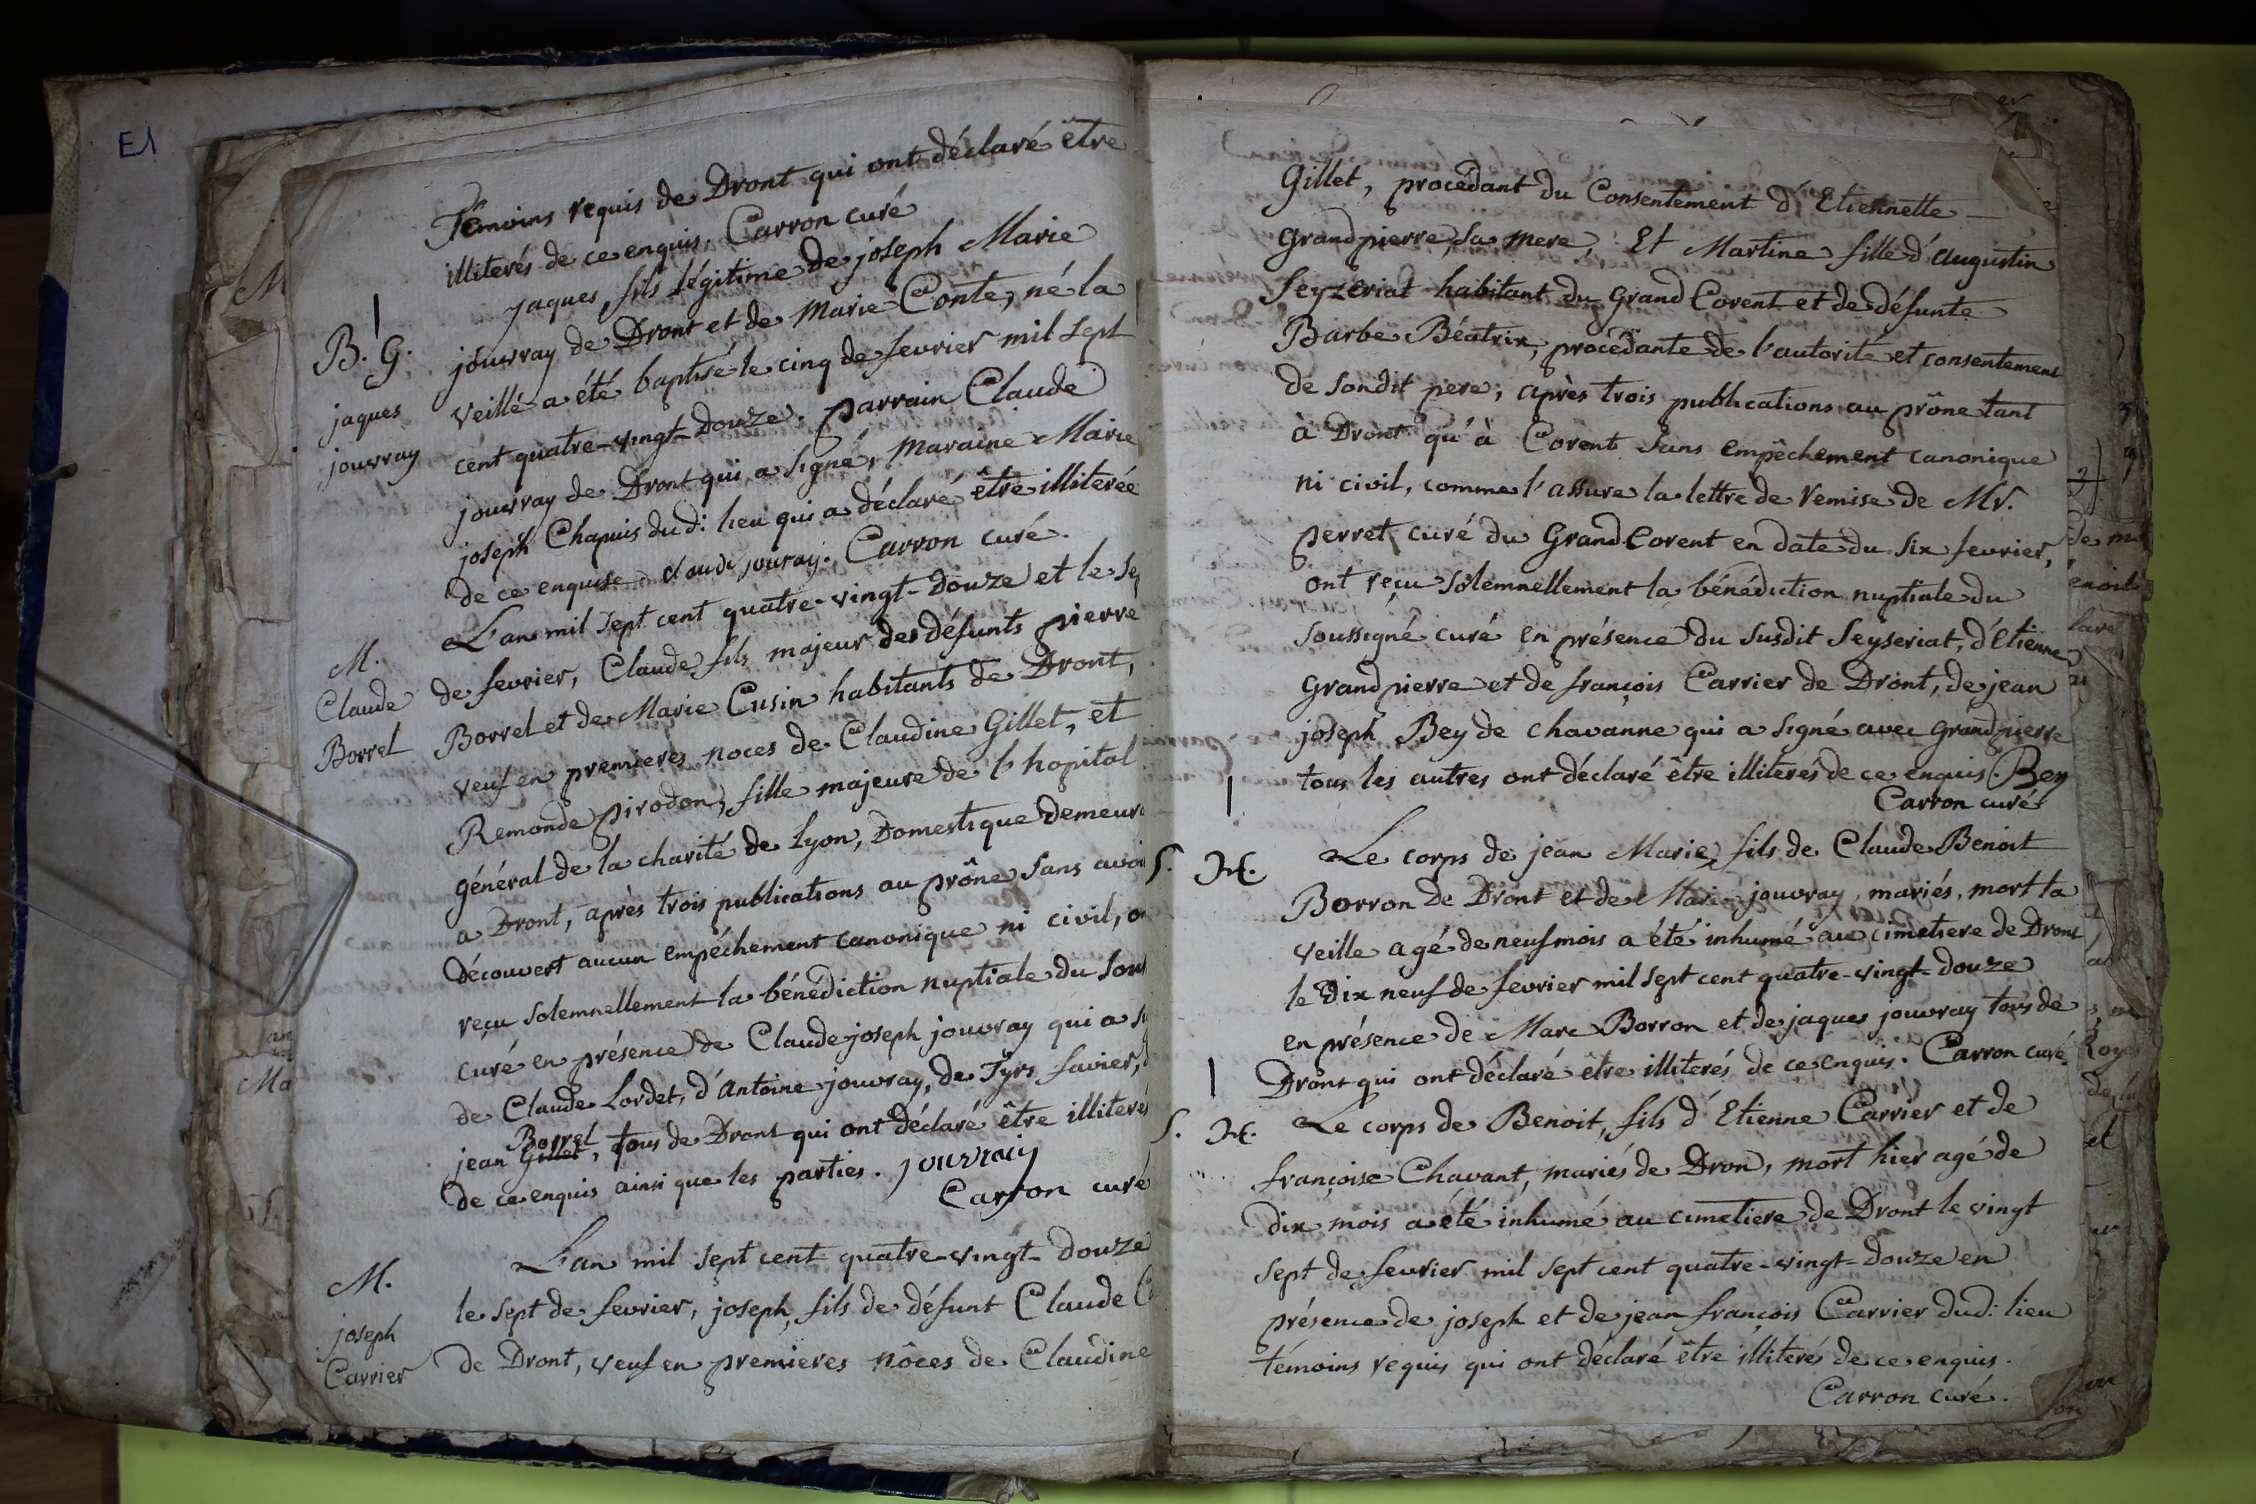 E1
Témoins requis de Dront qui ont déclaré être
illiterés de ce enquis. Carron curé
B. G.
jaques
jouvray
jaques fils légitime de joseph Marie
jouvray de Dront et de Marie Conte, né la
veille a été baptisé le cinq de fevrier mil sept
cent quatre-vingt-douze. parrain Claude
jouvray de Dront qui a signé, maraine Marie
joseph Chapuis dud: lieu qui a déclaré être illiterée
de ce enquise claude jouray. Carron curé.
M.
Claude
Borrel
L'an mil sept cent quatre-vingt-douze et le se
de fevrier, Claude fils majeur des défunts pierre
Borrel et de Marie Cusin habitants de Dront,
veuf en premieres noces de Claudine Gillet, et
Remonde pirodon, fille majeure de l'hopital
général de la charité de Lyon, Domestique demeur
a Dront, après trois publications au prône sans avoi
découvert aucun empêchement canonique ni civil, o
reçu solemnellement la bénédiction nuptiale du sous
curé en présence de Claude joseph jouvray qui a s
de Claude Lordet, d'antoine jouvray, de Tyrs favier,
Borrel
jean Gillet, tous de Dront qui ont déclaré être illiterés
de ce enquis ainsi que les parties. jouvray
Carron curé
M.
joseph
Carrier
L'an mil sept cent quatre-vingt-douze
le sept de fevrier, joseph, fils de défunt Claude C
de Dront, veuf en premieres nôces de Claudine
Gillet, procédant du Consentement d'Etiennette
grandpierre, sa mere, Et Martine fille d'augustin
Seyzeriat habitant du Grand Corent et de défunte
Barbe Béatrix, procédante de l'autorité et consentement
de sondit pere; après trois publications au prône tant
à Dront qu'à Corent sans empêchement canonique
ni civil, comme l'assure la lettre de remise de Mr.
perret curé du Grand Corent en date du six fevrier,
ont reçu solemnellement la bénédiction nuptiale du
soussigné curé en présence du susdit Seyseriat, d'Etienne
grandpierre et de françois Carrier de Dront, de jean
joseph Bey de chavanne qui a signé avec grandpierre
tous les autres ont déclaré être illiterés de ce enquis. Bey
Carron curé
S. M.
Le corps de jean Marie, fils de Claude Benoit
Borron de Dront et de Marie jouvray, mariés, mort la
veille agé de neuf mois a été inhumé au cimetiere de Dront
le dix neuf de fevrier mil sept cent quatre-vingt-douze
en présence de Marc Borron et de jaques jouvray tous de
Dront qui ont déclaré être illiterés de ce enquis. Carron curé
S. M.
Le corps de Benoit, fils d'Etienne Carrier et de
françoise Chavant, mariés de Dron, mort hier agé de
dix mois a été inhumé au cimetiere de Dront le vingt
sept de fevrier mil sept cent quatre-vingt-douze en
présence de joseph et de jean françois Carrier dud: lieu
témoins requis qui ont déclaré être illiterés de ce enquis.
Carron curé.